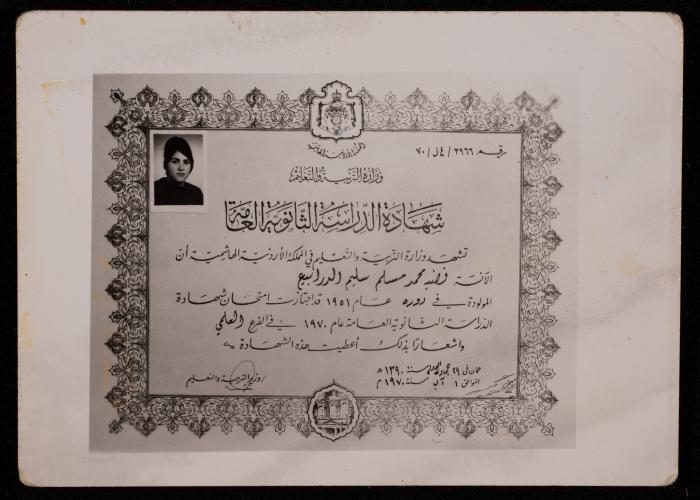 المملكة الأردنية الهاشمية
رقم ٢٩٦٦ / ٧٠
وزارة التربية والتعليم
شهادة الدراسة الثانوية العامة
تشهد وزارة التربية والتعليم في المملكة الأردنية الهاشمية أن
الآنسة فضيه محمد مسلم سليم الدرابيع
المولودة في دوره عام ١٩٥١ قد اجتازت امتحان شهادة
الدراسة الثانوية العامة عام ١٩٧٠ في الفرع العلمي
واشعارا بذلك أعطيت هذه الشهادة
عمان في ٢٩ جمادى الاولى سنة ١٣٩٠ هـ
الموافق ١ آب سنة ١٩٧٠ م
وزير التربية والتعليم